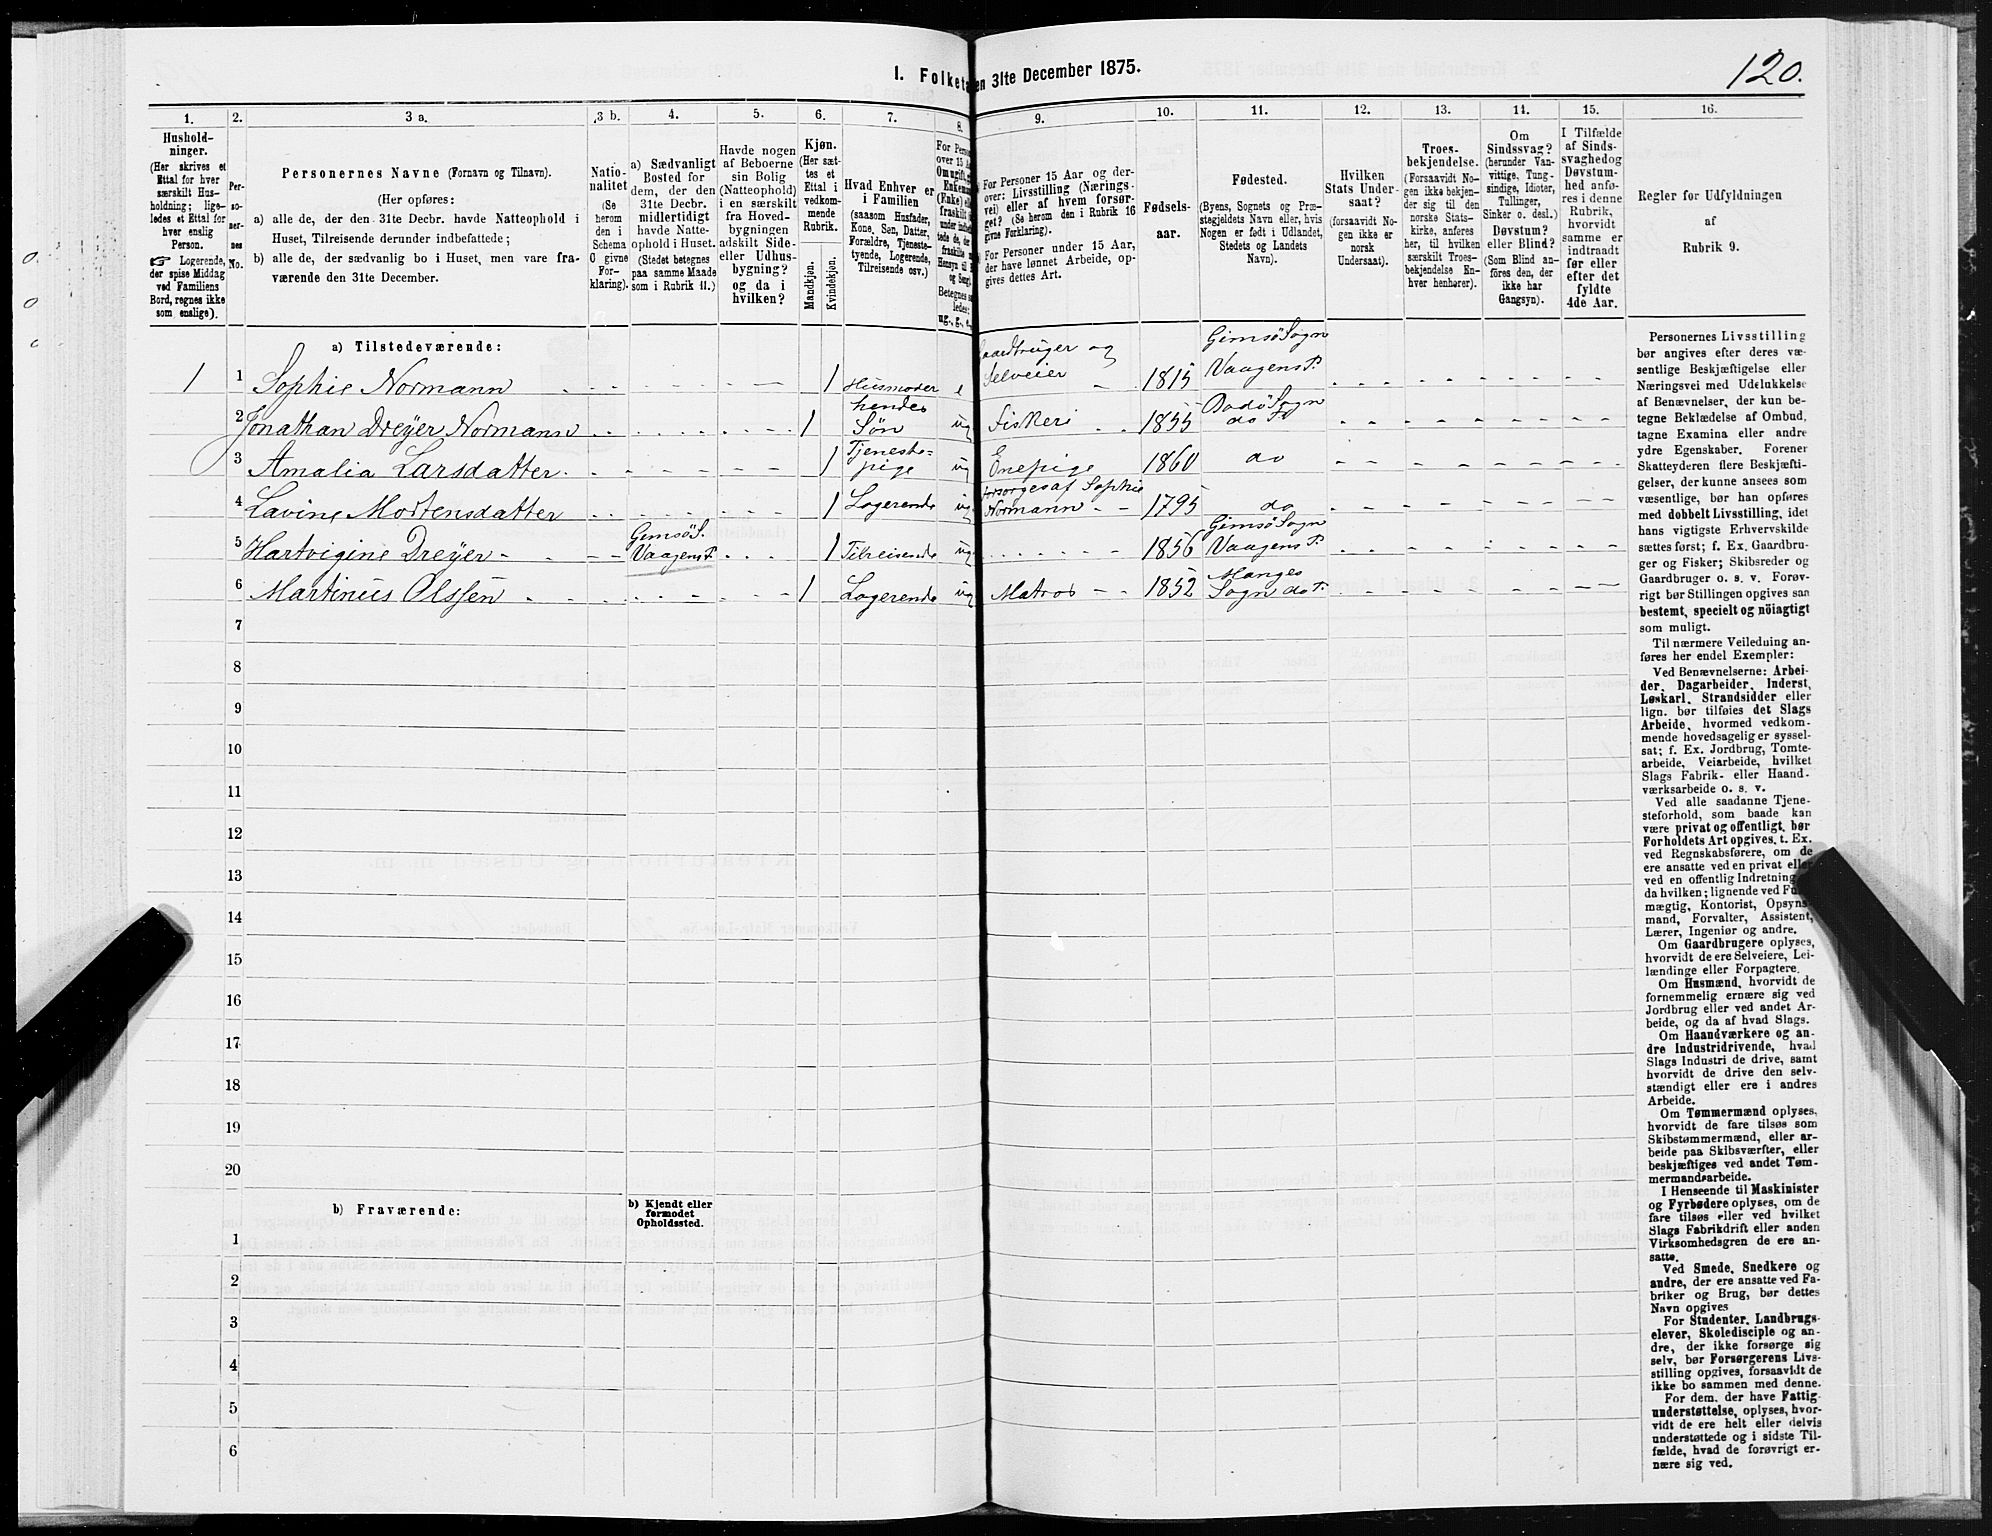 120.
I. Folketa en 31te December 1875.
1.
Hushold-
ninger.
(Her skrives et
Ettal for hver
særskilt Hus-
holdning; lige-
ledes et Ettal for
hver enslig
Person.
☞ Logerende,
der spise Middag
ved Familiens
Bord, regnes ikke
som enslige).
2.
Per-
so-
ner-
nes
No.
3 a.
Personernes Navne (Fornavn og Tilnavn).
(Her opføres:
a) alle de, der den 31te Decbr. havde Natteophold i
Huset, Tilreisende derunder indbefattede;
b) alle de, der sædvanlig bo i Huset, men vare fra-
værende den 31te December.
3 b.
Natio-
nalitet
(Se
herom
den i
Schema
C givne
For-
klaring).
4.
a) Sædvanligt
Bosted for
dem, der den
31te Decbr.
midlertidigt
havde Natte-
ophold i Huset.
(Stedet betegnes
paa samme Maade
som i Rubrik 11.)
5.
Havde nogen
af Beboerne
sin Bolig
(Natteophold)
i en særskilt
fra Hoved-
bygningen
adskilt Side-
eller Udhus-
bygning?
og da i
hvilken?
6.
Kjøn.
(Her sæt-
tes et
Ettal i
vedkom-
mende
Rubrik.
Mandkjøn.
Kvindekjøn.
7.
Hvad Enhver er
i Familien
(saasom Husfader,
Kone, Søn, Datter,
Forældre, Tjeneste-
tyende, Logerende,
Tilreisende osv.)
8.
For Person
over 15 A
Om ugift, g
Enkem
(Enke) elle
fraskilt
under indbe
tede de, de
fraskilte
Hensyn til
og Seng)
Betegnes s
ledes:
ug., g., e.,
9.
For Personer 15 Aar og der-
over: Livsstilling (Nærings-
vei) eller af hvem forsør-
get? (Se herom den i Rubrik 16
givne Forklaring).
For Personer under 15 Aar,
der have lønnet Arbeide, op-
gives dettes Art.
10.
Fødsels-
aar.
11.
Fødested.
(Byens, Sognets og Præ-
stegjeldets Navn eller, hvis
Nogen er født i Udlandet,
Stedets og Landets
Navn).
12.
Hvilken
Stats Under-
saat?
(forsaavidt No-
gen ikke er
norsk
Undersaat).
13.
Troes-
bekjendelse.
(Forsaavidt No-
gen ikke bekjen-
der sig til den
norske Stats-
kirke, anføres
her, til hvilken
særskilt Troes-
bekjendelse En-
hver henhører).
14.
Om
Sindssvag?
(herunder Van-
vittige, Tung-
sindige, Idioter,
Tullinger,
Sinker o. desl.)
Døvstum?
eller Blind?
(Som Blind an-
føres den, der
ikke har
Gangsyn).
15.
I Tilfælde
af Sinds-
svaghedog
Døvstum-
hed anfø-
res i denne
Rubrik,
hvorvidt
samme er
indtraadt
før eller
efter det
fyldte
4de Aar.
16.
Regler for Udfyldningen
af
Rubrik 9.
a) Tilstedeværende:
1 1 Sophie Normann 1 Husmoder e Gaardbruger og Selveier 1815 Gimsö Sogn Vaagens P.
2 Jonathan Dreyer Normann 1 hendes Søn ug Fiskeri 1855 Bodö Sogn do P
3 Amalia Larsdatter 1 Tjeneste-pige ug Enepige 1860 do
4 Lavine Mortensdatter 1 Logerende ug forsørges af Sophie Normann 1795 do
5 Hartvigine Dreyer Gimsö S. Vaagens P. 1 Tilreisende ug 1856 Gimsö Sogn Vaagens P.
6 Martinus Olssen 1 Logerende ug Matros 1852 Manges Sogn do P.
7
8
9
10
11
12
13
14
15
16
17
18
19
20
b) Fraværende:
b) Kjendt eller
formodet
Opholdssted.
1
2
3
4
5
6
Personernes Livsstilling
bør angives efter deres væ-
sentlige Beskjæftigelse eller
Næringsvei med Udelukkelse
af Benævnelser, der kun be-
tegne Beklædelse af Ombud,
tagne Examina eller andre
ydre Egenskaber. Forener
Skatteyderen flere Beskjæfti-
gelser, der kunne ansees som
væsentlige, bør han opføres
med dobbelt Livsstilling, idet
hans vigtigste Erhvervskilde
sættes først; f. Ex. Gaardbru-
ger og Fisker; Skibsreder og
Gaardbruger o. s. v. Forøv-
rigt bør Stillingen opgives saa
bestemt, specielt og nöiagtigt
som muligt.
Til nærmere Veiledning an-
føres her endel Exempler:
Ved Benævnelserne: Arbei-
der, Dagarbeider, Inderst,
Løskarl, Strandsidder eller
lign. bør tilføies det Slags
Arbeide, hvormed vedkom-
mende hovedsagelig er syssel-
sat; f. Ex. Jordbrug, Tomte-
arbeide, Veiarbeide, hvilket
Slags Fabrik- eller Haand-
værksarbeide o. s. v.
Ved alle saadanne Tjene-
steforhold, som baade kan
være privat og offentligt, bør
Forholdets Art opgives, t. Ex.
ved Regnskabsførere, om de
ere ansatte ved en privat eller
ved en offentlig Indretning,
da hvilken; lignende ved Ful-
mægtig, Kontorist, Opsyns-
mand, Forvalter, Assistent,
Lærer, Ingeniør og andre.
Om Gaardbrugere oplyses,
hvorvidt de ere Selveiere, Lei-
lændinge eller Forpagtere.
Om Husmænd, hvorvidt de
fornemmelig ernære sig ved
Jordbrug eller ved andet Ar-
beide, og da af hvad Slags.
Om Haandværkere og an-
dre Industridrivende, hvad
Slags Industri de drive, samt
hvorvidt de drive den selv-
stændigt eller ere i andres
Arbeide.
Om Tømmermænd oplyses,
hvorvidt de fare tilsøs som
Skibstømmermænd, eller ar-
beide paa Skibsværfter, eller
beskjæftiges ved andet Tøm-
mermandsarbeide.
I Henseende til Maskinister
og Fyrbødere oplyses, om de
fare tilsøs eller ved hvilket
Slags Fabrikdrift eller anden
Virksomhedsgren de ere an-
satte.
Ved Smede, Snedkere og
andre, der ere ansatte ved Fa-
briker og Brug, bør dettes
Navn opgives
For Studenter, Landbrugs-
elever, Skoledisciple og an-
dre, der ikke forsørge sig
selv, bør Forsørgerens Livs-
stilling opgives, forsaavidt de
ikke bo sammen med denne.
For dem, der have Fattig-
understøttelse, oplyses, hvor-
vidt de ere helt eller delvis
understøttede og i sidste Til-
fælde, hvad de forøvrigt er-
nære sig ved.